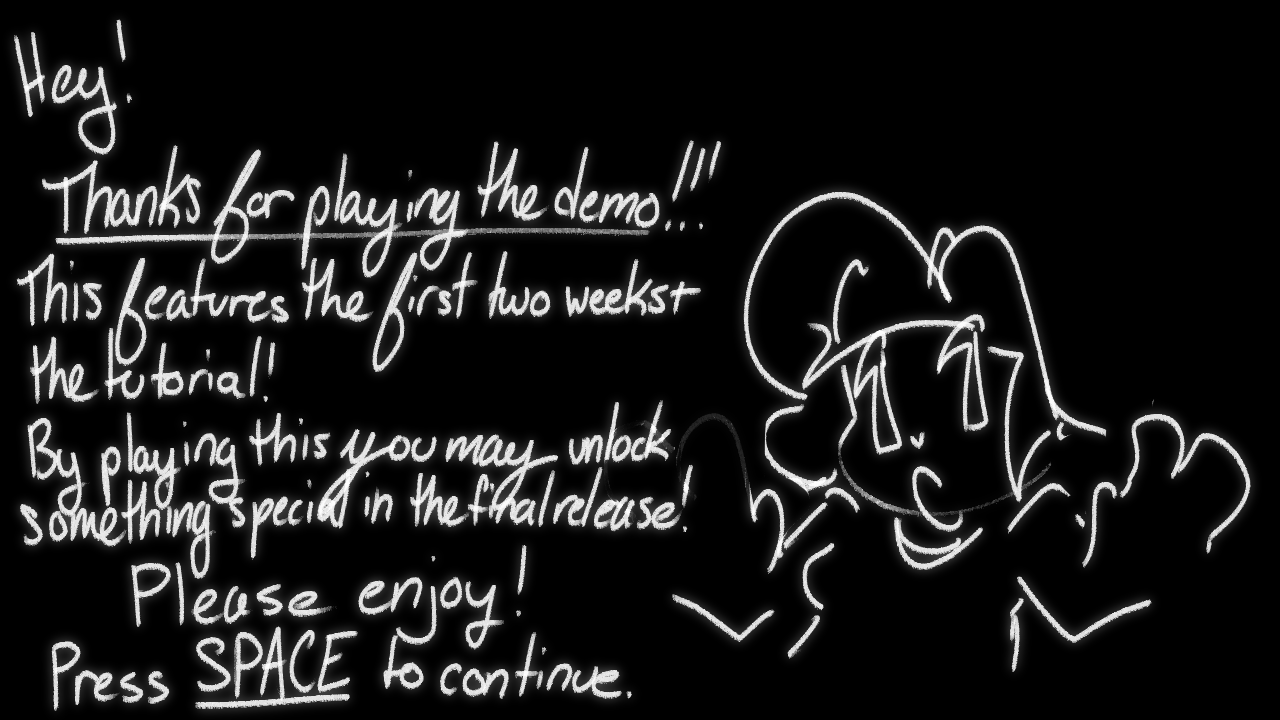 Hey!
Thanks for playing the demo!!!
This features the first two weeks +
the tutorial!
By playing this you may unlock
something special in the final release!
Please enjoy!
Press SPACE to continue.